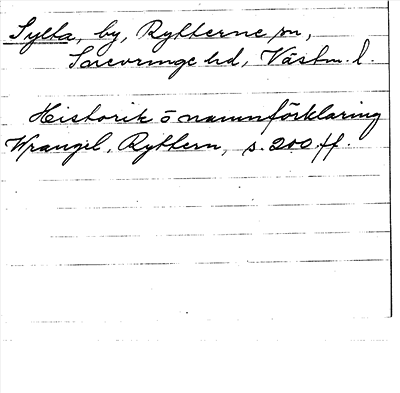 Sylta, by, Rytterne sn,
Snevringe hd, Västm. l.
Historik o namnförklaring
Wrangel, Ryttern, s. 200 ff.